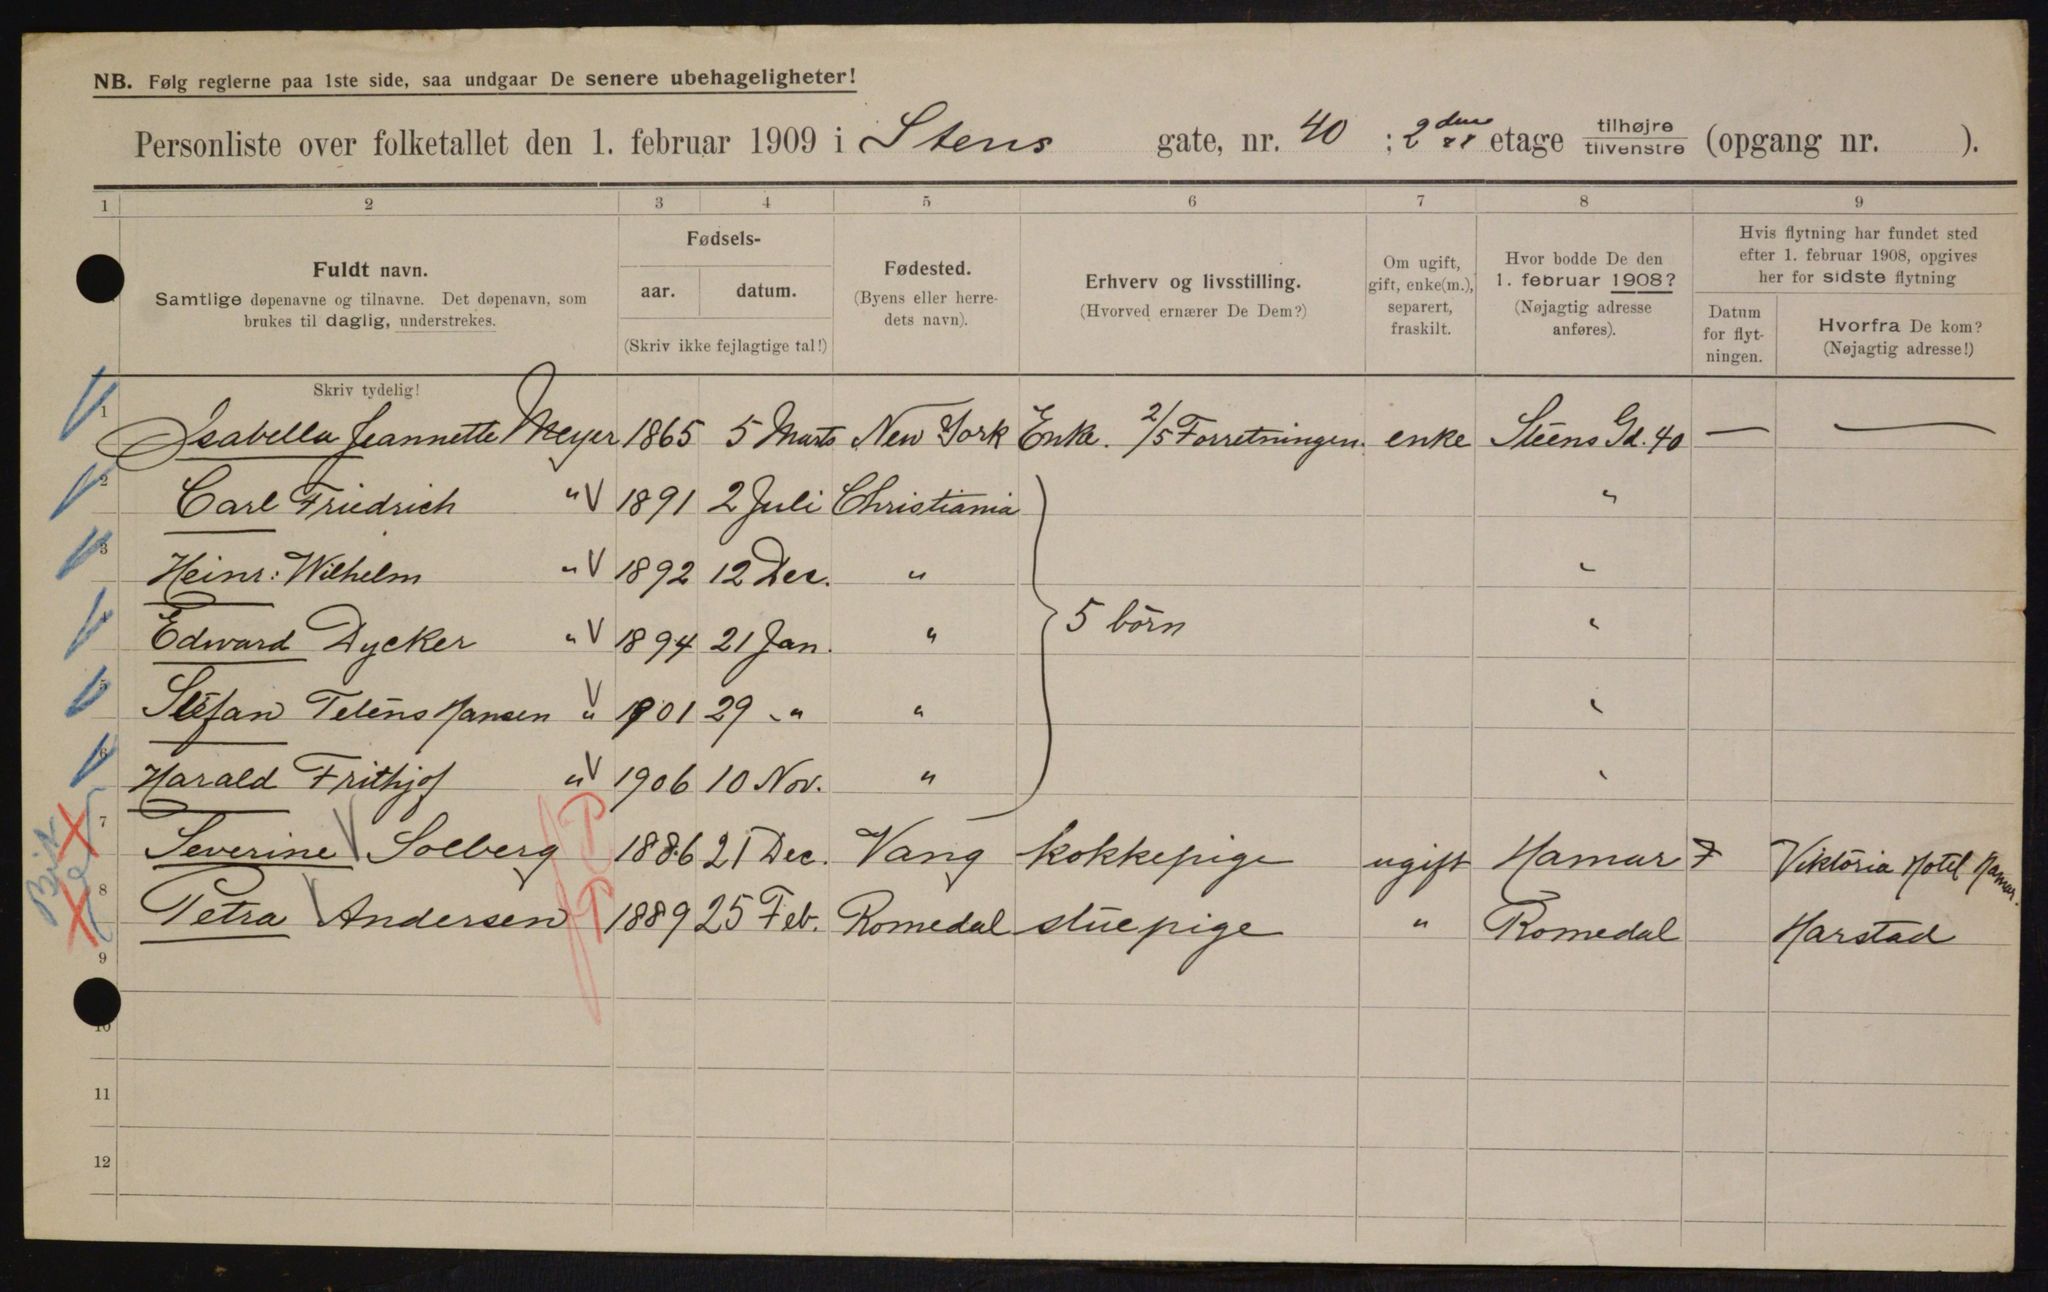 NB. Følg reglerne paa 1ste side, saa undgaar De senere ubehageligheter!
Personliste over folketallet den 1. februar 1909 i Stens gate, nr. 40 ; 2den etage tilhøjre tilvenstre (opgang nr. ).
1 2 3 4 5 6 7 8 9
Fuldt navn.
Samtlige døpenavne og tilnavne. Det døpenavn, som
brukes til daglig, understrekes.
Fødsels-
aar. datum.
(Skriv ikke fejlagtige tal!)
Fødested.
(Byens eller herre-
dets navn).
Erhverv og livsstilling.
(Hvorved ernærer De Dem?)
Om ugift,
gift, enke(m.),
separert,
fraskilt.
Hvor bodde De den
1. februar 1908?
(Nøjagtig adresse
anføres).
Hvis flytning har fundet sted
efter 1. februar 1908, opgives
her for sidste flytning
Datum
for flyt-
ningen.
Hvorfra De kom?
(Nøjagtig adresse!)
Skriv tydelig!
1 Isabella Jeannette Meyer 1865 5 Marts New York Enke. 2/5 Forretningen. enke Steens Gd. 40 — —
2 Carl Friedrich " V 1891 2 Juli Christiania "
3 Heinr: Wilhelm " V 1892 12 Dec. " "
Edward Dycker " V 1894 21 Jan. " 5 börn "
5 Stefan Teténs Hansen " V 1901 29 " " "
6 Harald Frithjof " V 1906 10 Nov. " "
7 Severine Solberg P 1886 21 Dec. Vang kokkepige ugift Hamar Viktoria Hotel Hamar.
8 Petra Andersen P 1889 25 Feb. Romedal stuepige " Romedal Harstad
9
10
11
12